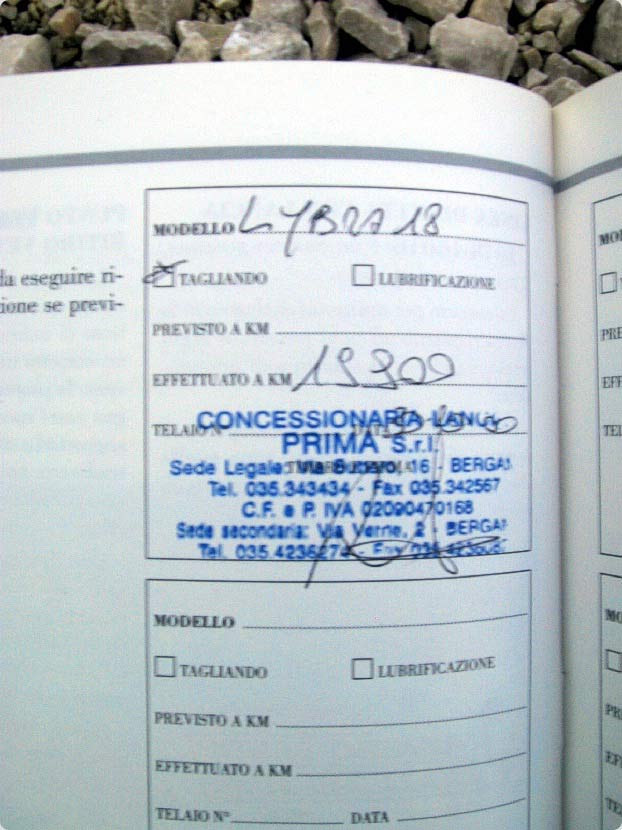 da eseguire ri-
zione se previ-
MODELLO LYBRA 18
TAGLIANDO LUBRIFICAZIONE
PREVISTO A KM
EFFETTUATO A KM 19900
TELAIO N° DATA
CONCESSIONARIA LANCI
PRIMA S.r.l.
Sede Legale: Via 16 - BERGAM
Tel. 035.343434 - Fax 035.342567
C.F. e P. IVA 02090470168
Sede secondaria: Via Verne, 2 - BERGAM
Tel. 035.4236274 - Fax
MODELLO
TAGLIANDO LUBRIFICAZIONE
PREVISTO A KM
EFFETTUATO A KM
TELAIO N° DATA